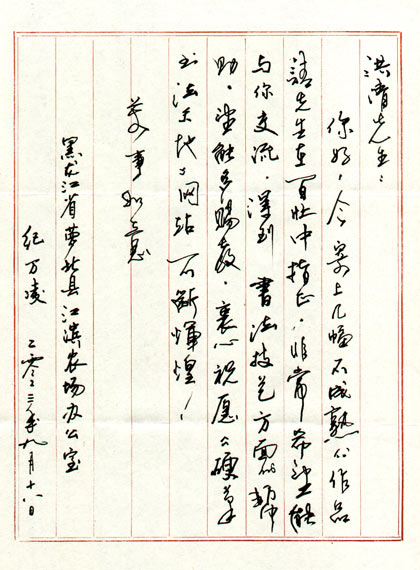 洪清先生：
你好！今寄上几幅不成熟的作品
请先生在百忙中指正，非常希望能
与你交流，得到书法技艺方面的帮
助，望能多赐教，衷心祝愿《硬笔
书法天地》网站不断辉煌！
万事如意
黑龙江省萝北县江滨农场办公室
纪万凌 二〇〇三年九月十八日